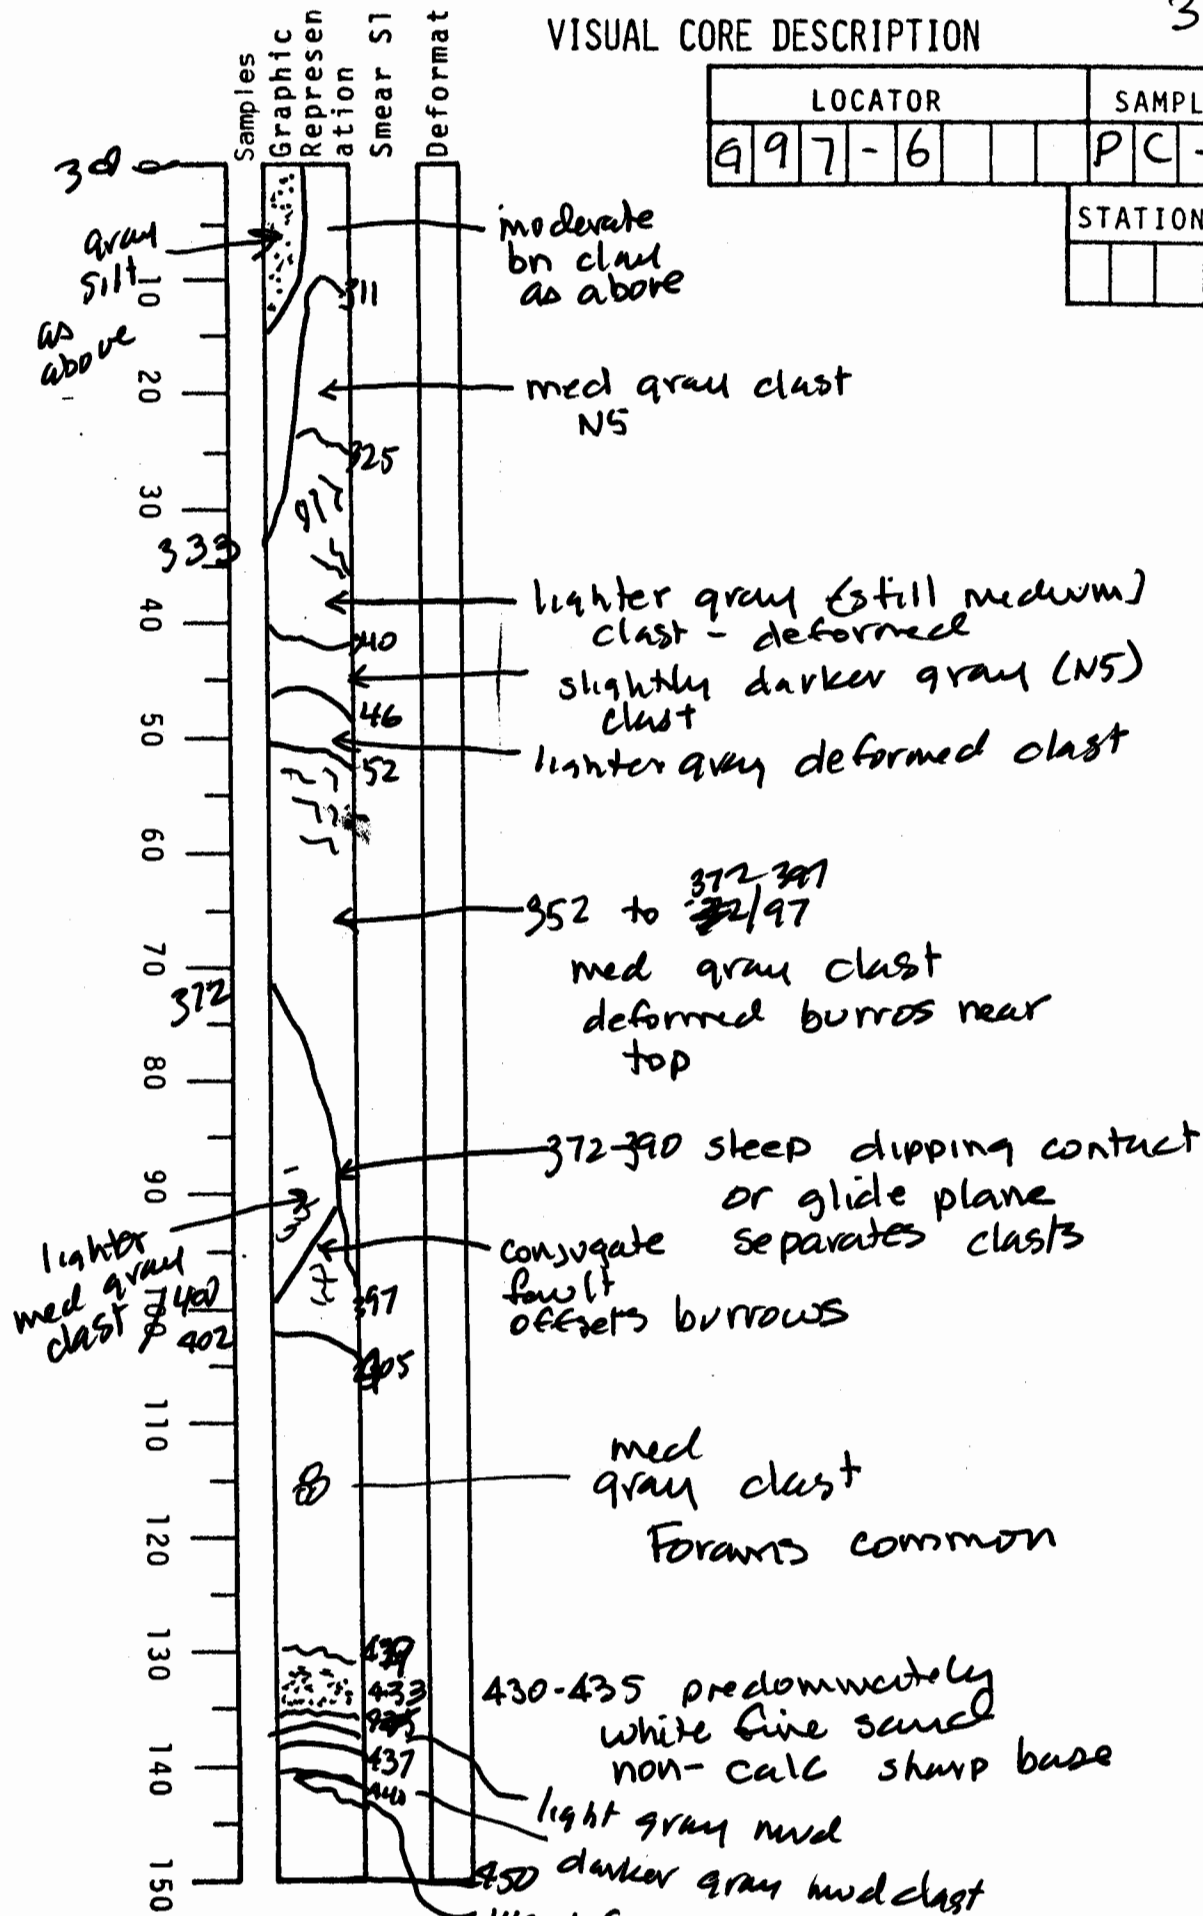 VISUAL CORE DESCRIPTION
3
Samples
Graphic
Represen
ation
Smear Sl
Deformat
LOCATOR
SAMPL
G97-6
PC-
STATION
0
10
20
30
40
50
60
70
80
90
100
110
120
130
140
150
gray
silt
as
above
moderate
bn clay
as above
311
med gray clast
N5
325
333
lighter gray (still medium)
clast - deformed
40
slightly darker gray (N5)
clast
46
lighter gray deformed clast
52
372 397
352 to /97
med gray clast
deformed burros near
top
372
372-390 steep dipping contact
or glide plane
separates clasts
lighter
med gray
clast
conjugate
fault
offsets burrows
397
400
402
405
med
gray clast
Forams common
433
430-435 predominately
white fine sand
non-calc sharp base
435
437
440
light gray mud
darker gray mud clast
450